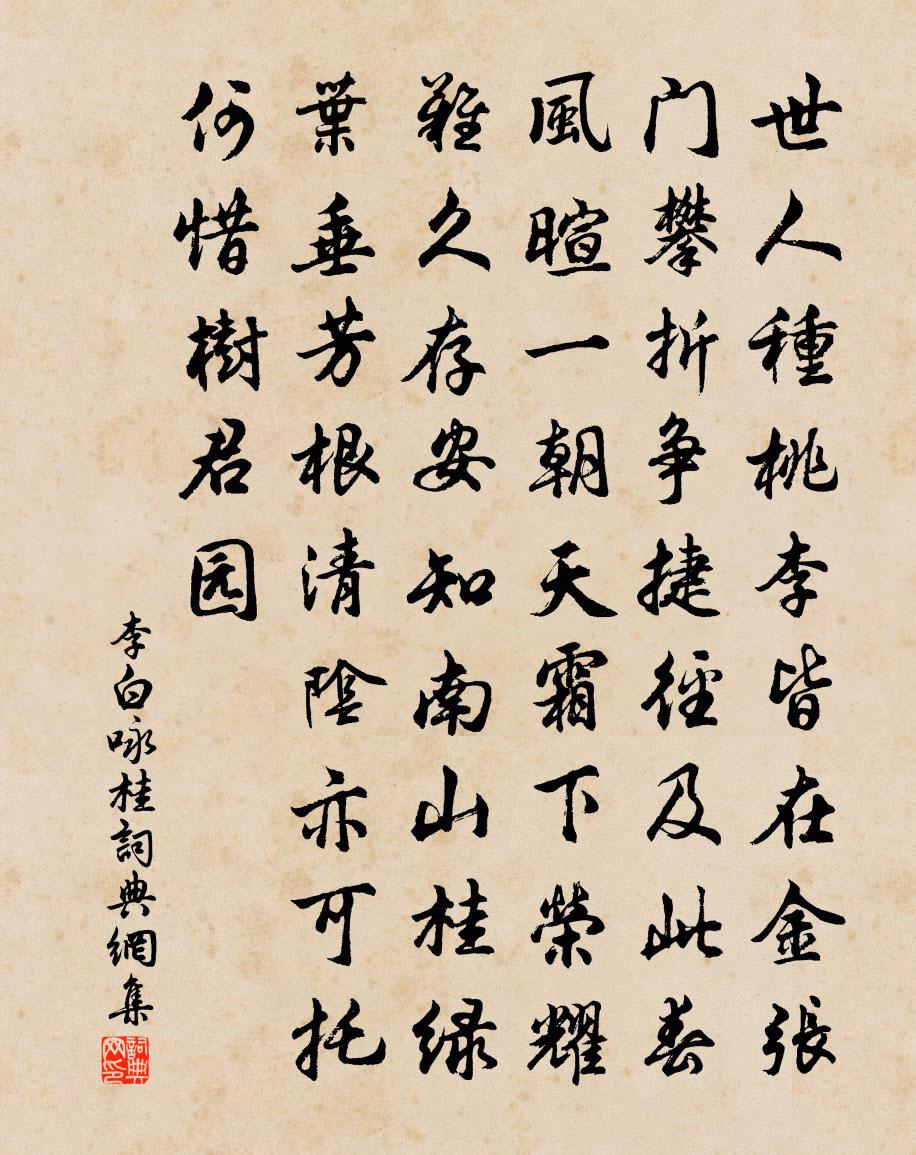 世人種桃李皆在金張
门攀折争捷徑及此春
風暄一朝天霜下榮耀
難久存安知南山桂绿
葉垂芳根清陰亦可托
何惜樹君园
李白咏桂詞典網集
詞典网印